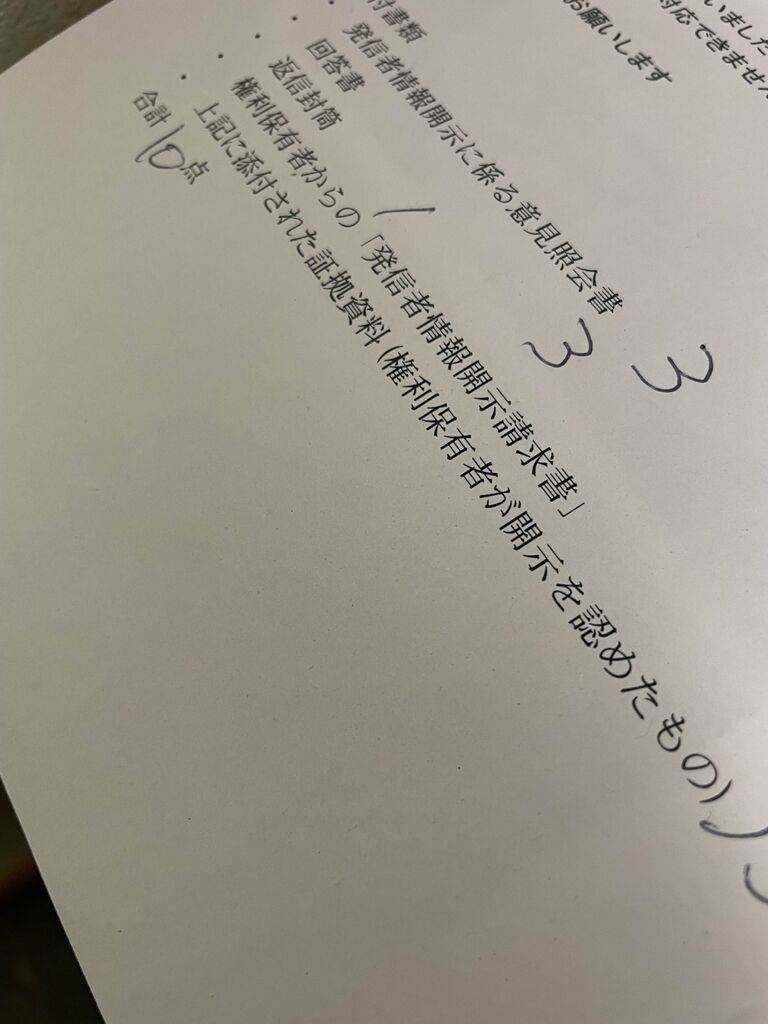 いました
対応できません
お願いします
付書類
・発信者情報開示に係る意見照会書 3
・回答書 3
・返信封筒 1
・権利保有者からの「発信者情報開示請求書」
・上記に添付された証拠資料(権利保有者が開示を認めたもの)
合計10点